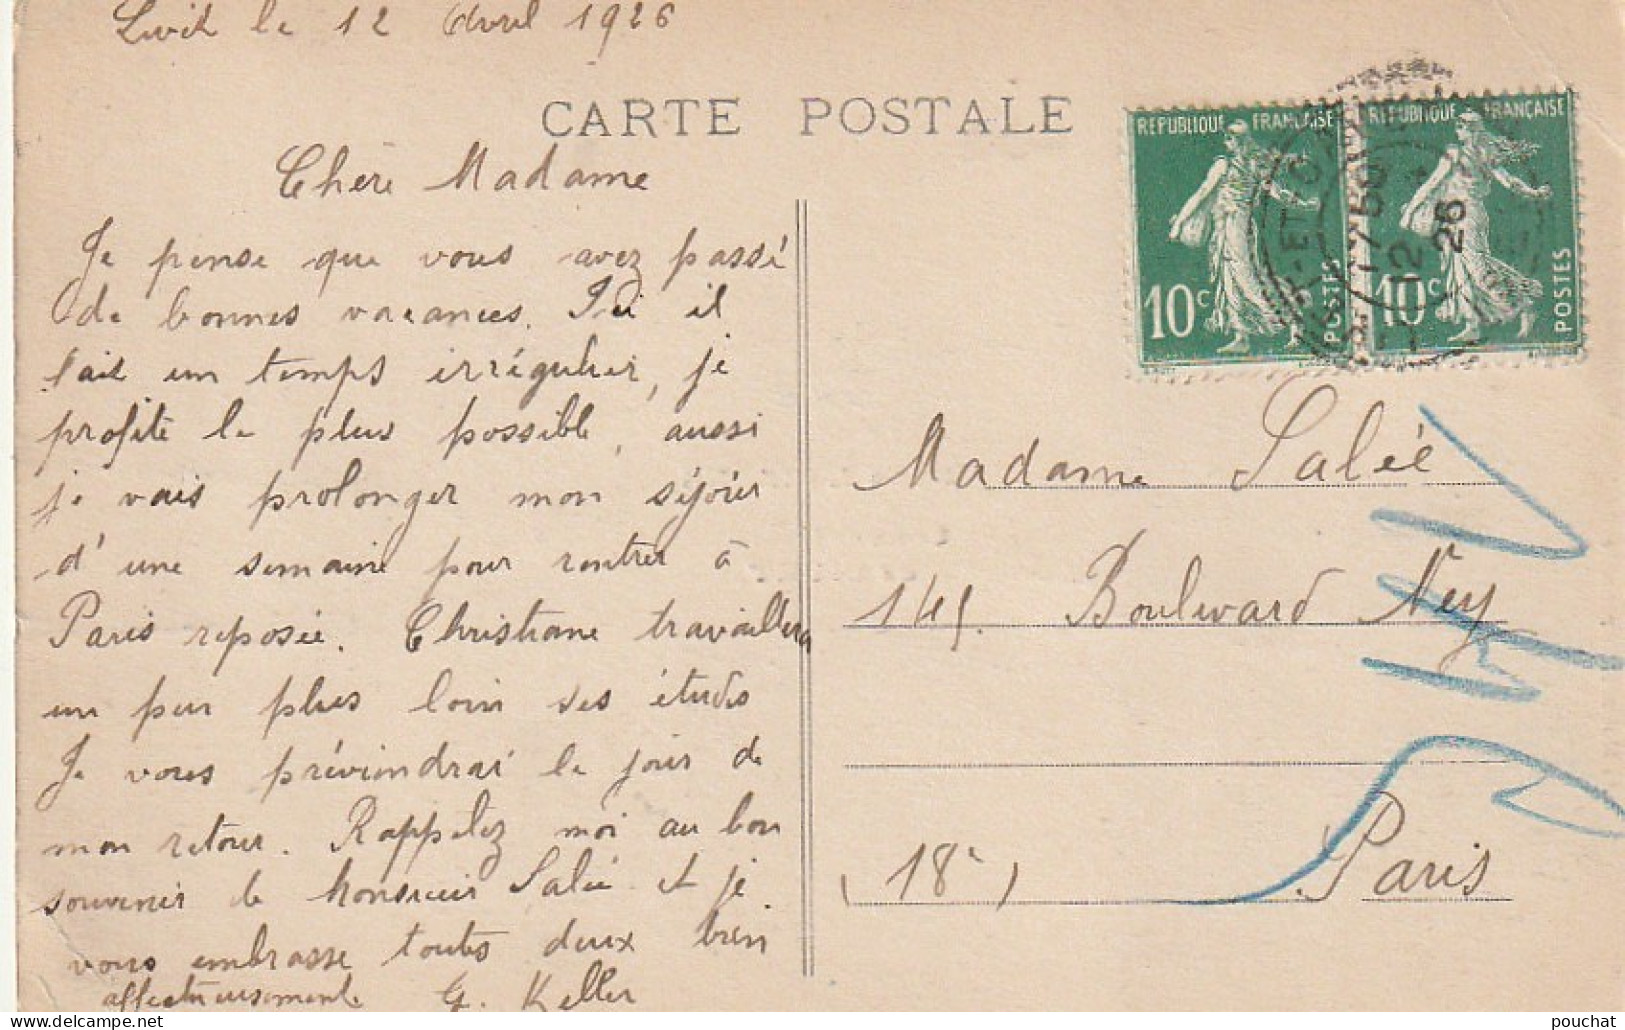 le 12 Avril 1926
CARTE POSTALE
Chère Madame
Je pense que vous avez passé
de bonnes vacances. Ici il
fait un temps irrégulier, je
profite le plus possible, aussi
je vais prolonger mon séjour
d'une semaine pour rentrer à
Paris reposée. Christiane travaillera
un peu plus loin ses études
Je vous préviendrai le jour de
mon retour. Rappelez moi au bon
souvenir de Monsieur Salée et je
vous embrasse toutes deux bien
affectueusement G. Keller
REPUBLIQUE FRANÇAISE
10c POSTES
REPUBLIQUE FRANÇAISE
10c POSTES
ET
17 50
12
26
Madame Salée
145. Boulevard Ney
Paris
(18e)
pouchat